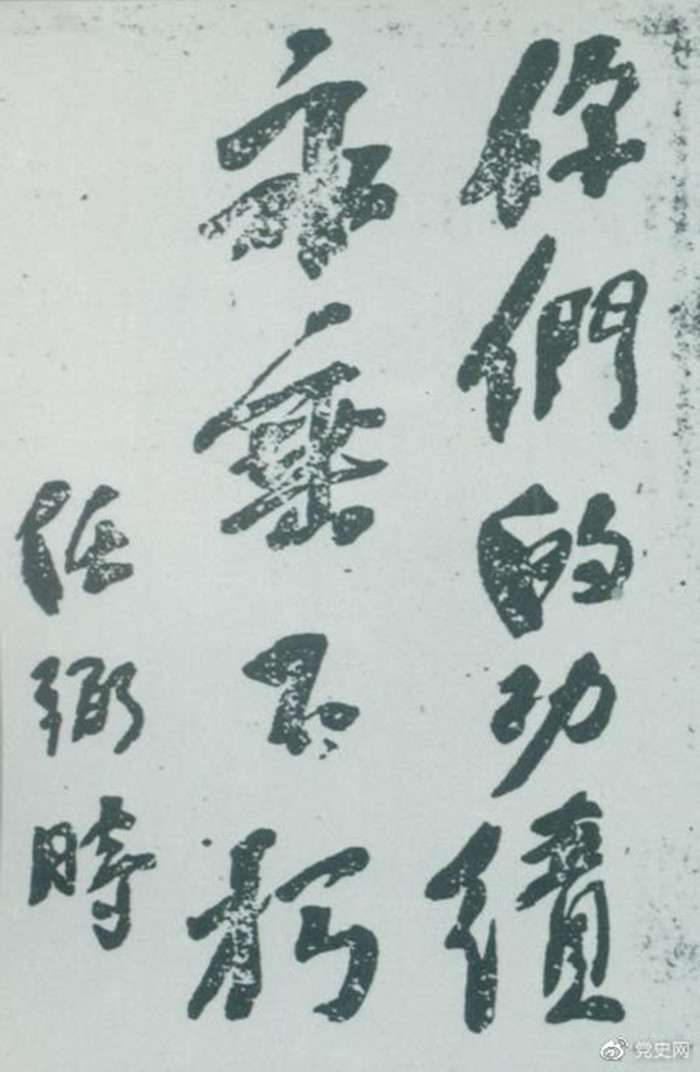 你們的功績
永垂不朽
任弼時
党史网